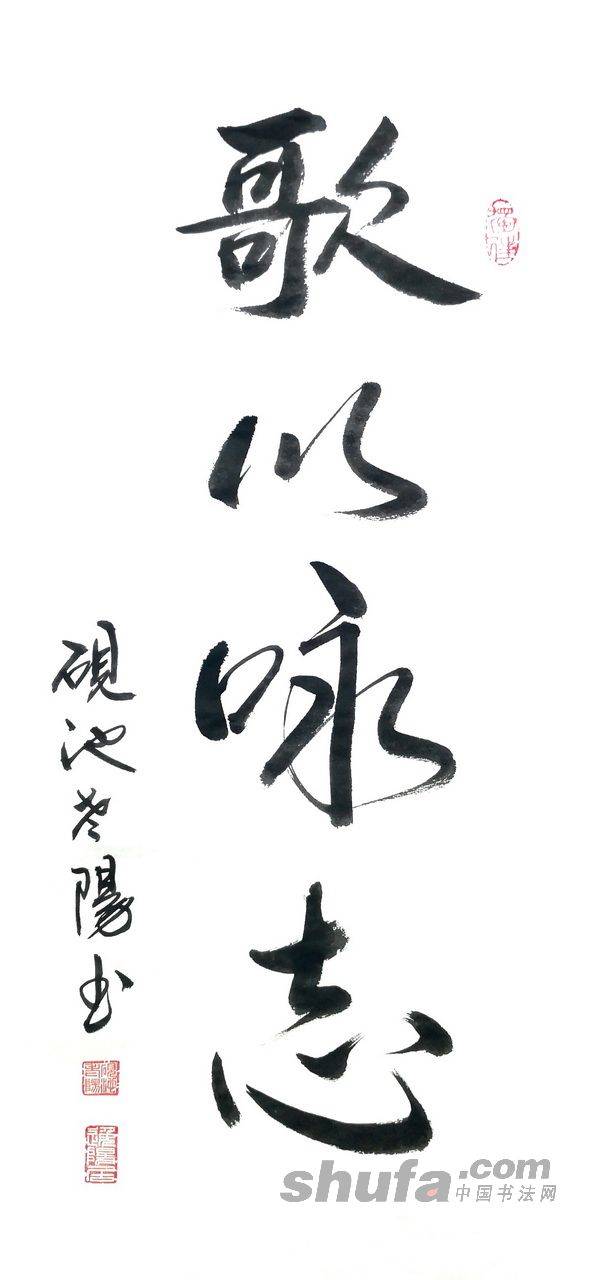 歌以咏志
砚池岑陽书
shufa.com
中国书法网